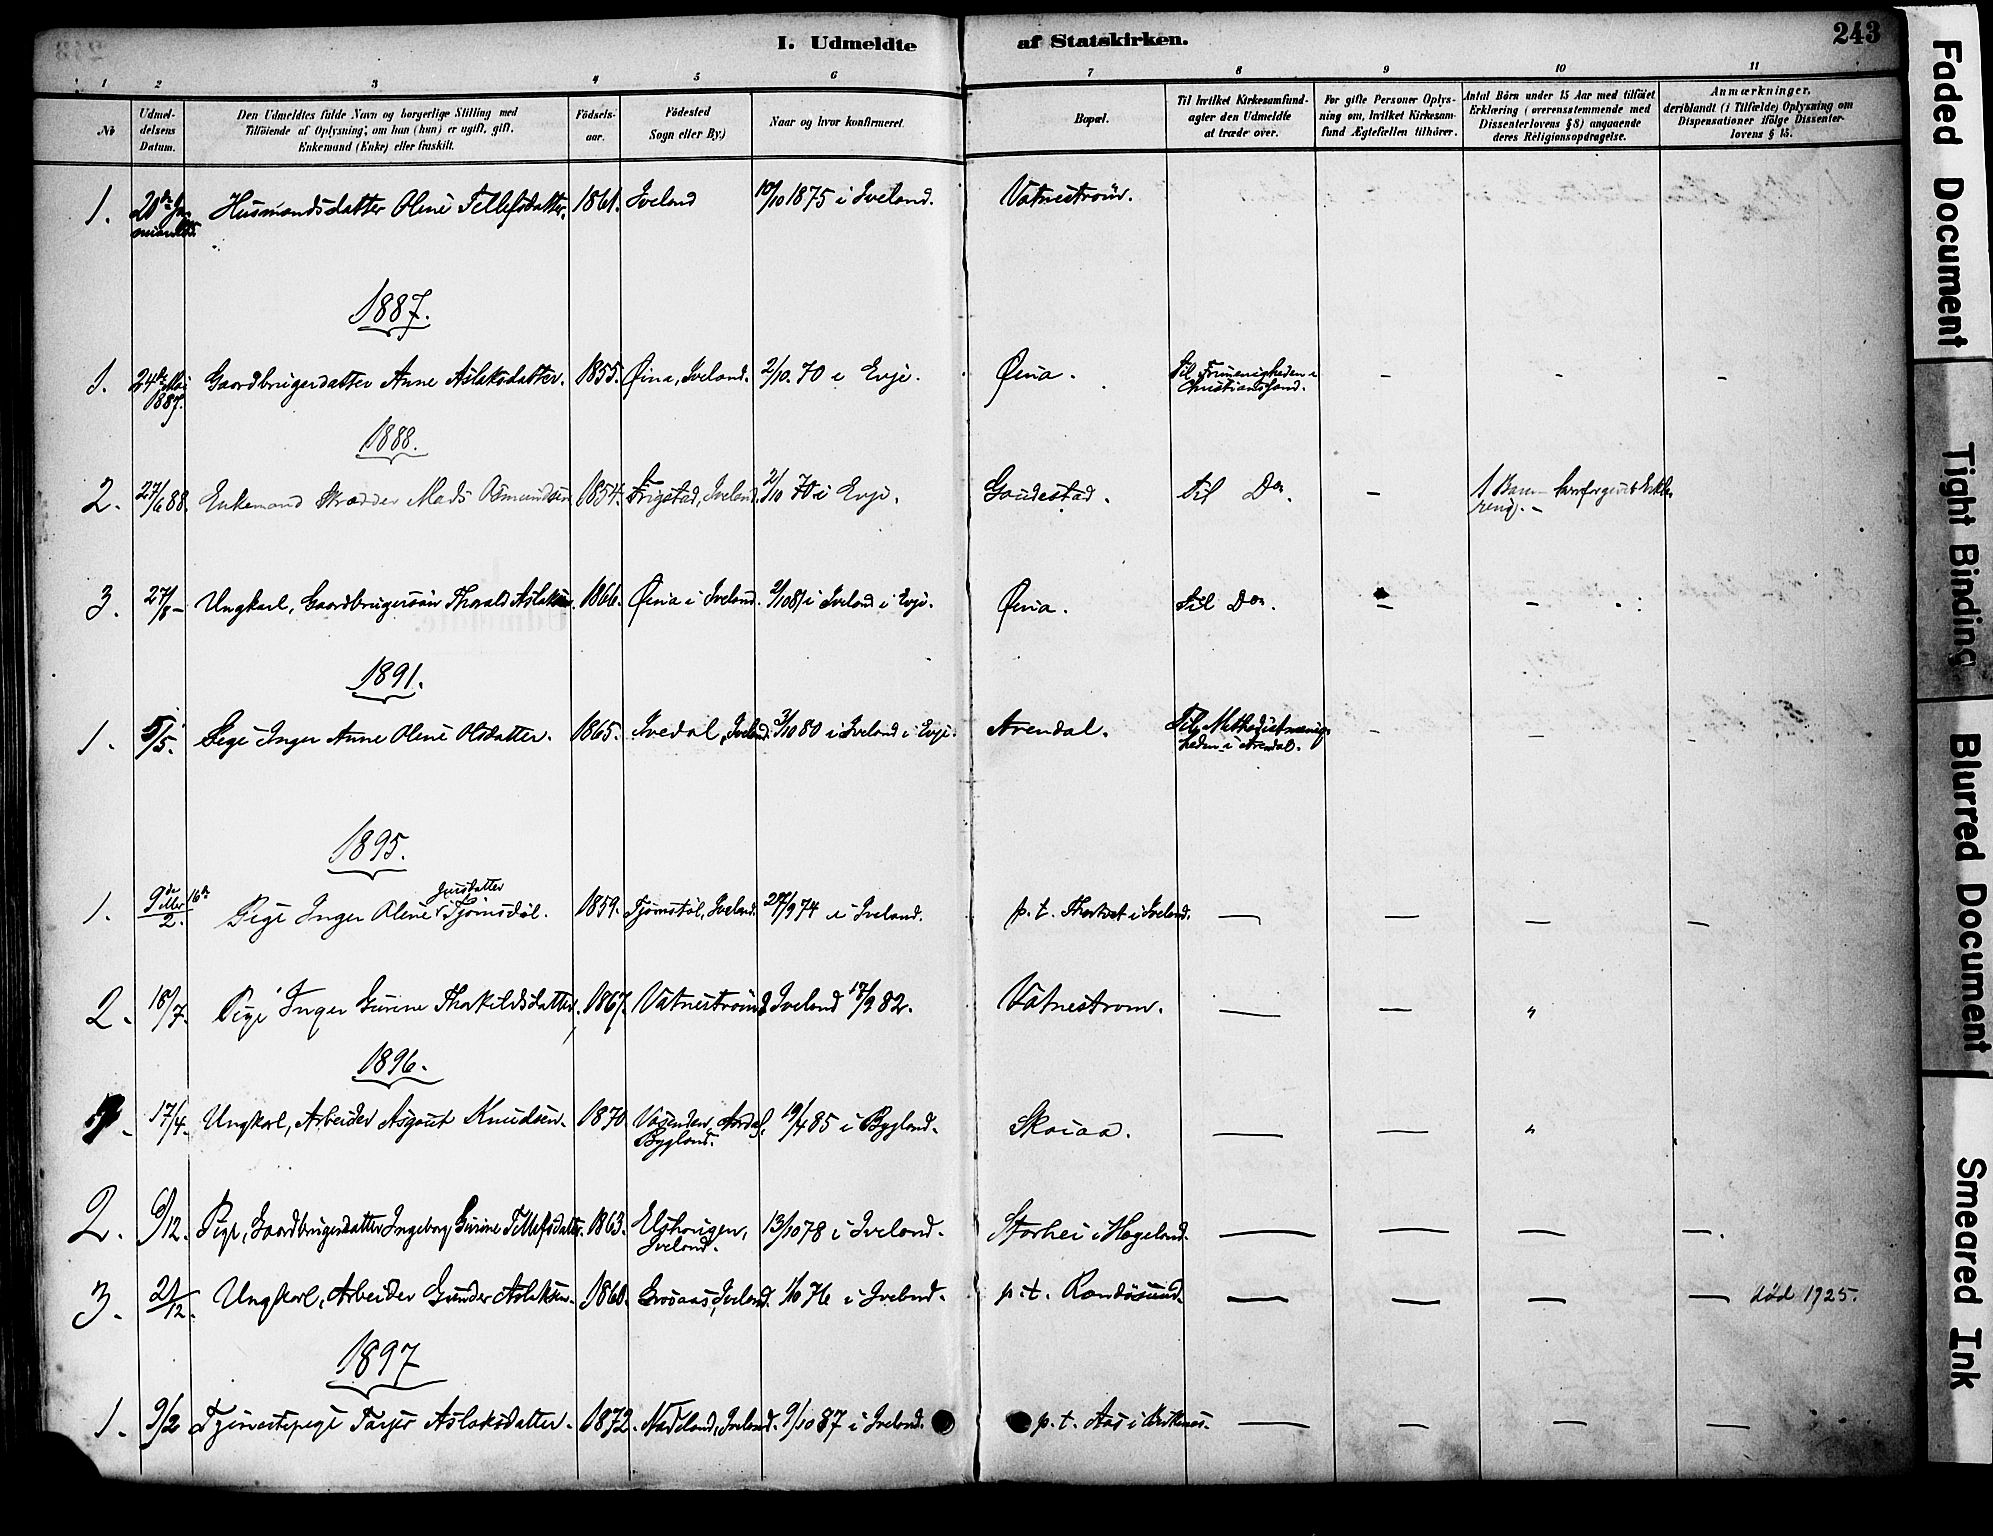 I. Udmeldte af Statskirken.
243
1 2 3 4 5 6 7 8 9 10 11
No
Udmeldelsens Datum.
Den Udmeldtes fulde Navn og borgerlige Stilling med
Tilföiende af Oplysning; om han (hun) er ugift, gift,
Enkemand (Enke) eller fraskilt.
Födselsaar.
Födested
Sogn eller By)
Naar og hvor konfirmeret.
Bopæl.
Til hvilket Kirkesamfund-
agter den Udmeldte
at træde over.
For gifte Personer Oplys-
ning om, hvilket Kirkesam-
fund Ægtefællen tilhører.
Antal Börn under 15 Aar med tilföiet
Erklæring (overensstemmende med
Dissenterlovens § 8) angaaende
deres Religionsopdragelse.
Anmærkninger,
deriblandt (i Tilfælde) Oplysning om
Dispensationer ifölge Dissenter-
lovens § 15.
1. Husmandsdatter Olene Tellefsdatter. 1861. Iveland 10/10 1875 i Iveland. Vatneström.
1887.
1. 24de Mai 1887. Gaardbrugerdatter Anne Aslaksdatter. 1855. Øina, Iveland. 2/10. 70 i Evje. Øina. til Frimenigheden i Christianssand. - - -
1888.
2. 27/6 88. Enkemand Skrædder Mads Osmundsen 1854. Frigstad, Iveland 2/10 70 i Evje. Gaudestad. til Do. - 1 Barn
3. 27/8 - Ungkarl, Gaardbrugersön Thorald Aslaksen. 1866. Øina i Iveland. i Iveland i Evje. Øina. til Do. - -
1891.
1. 5/5. Pige Inger Anne Olene Olsdatter. 1865. Ivedal, Iveland. 3/10 80 i Iveland i Evje. Arendal. Til Methodistmenig-
heden i Arendal. - - -
1895.
1. 9de 16de 2. Pige Inger Olene Jensdatter Tjömsdöl. 1859. Tjömsdöl, Iveland. 27/9 74 i Iveland. p. t. i Iveland. — — — —
2. 18/7. Pige Inger Gurine Thorkildsdatter, 1867. Vatneström, Iveland 17/9 82. Vatnestrom. — — "
1896.
17/4. Ungkarl, Arbeider Asgout Knudsen. 1870 Vasenden, Aardal, Bygland. 19/4 85 i Bygland. Skaiaa. — — "
2. 9/12. Pige, Gaardbrugerdatter Ingeborg Gurine Tellefsdatter. 1863. Elshougen, Iveland. 13/10 78 i Iveland. Storhei i Hægeland. — — — —.
3. 21/12. Ungkarl, Arbeider Gunder Aslaksen. 1860. Grosaas, Iveland. 1/10 76 i Iveland. p. t. Randösund. — — — — död 1925.
1897
1. 9/2 Tjenestepige Tarjer Aslaksdatter. 1872. Nateland, Iveland. 9/10 87 i Iveland. p. t. Aas i — — — —
Faded Document
Tight Binding
Blurred Document
Smeared Ink